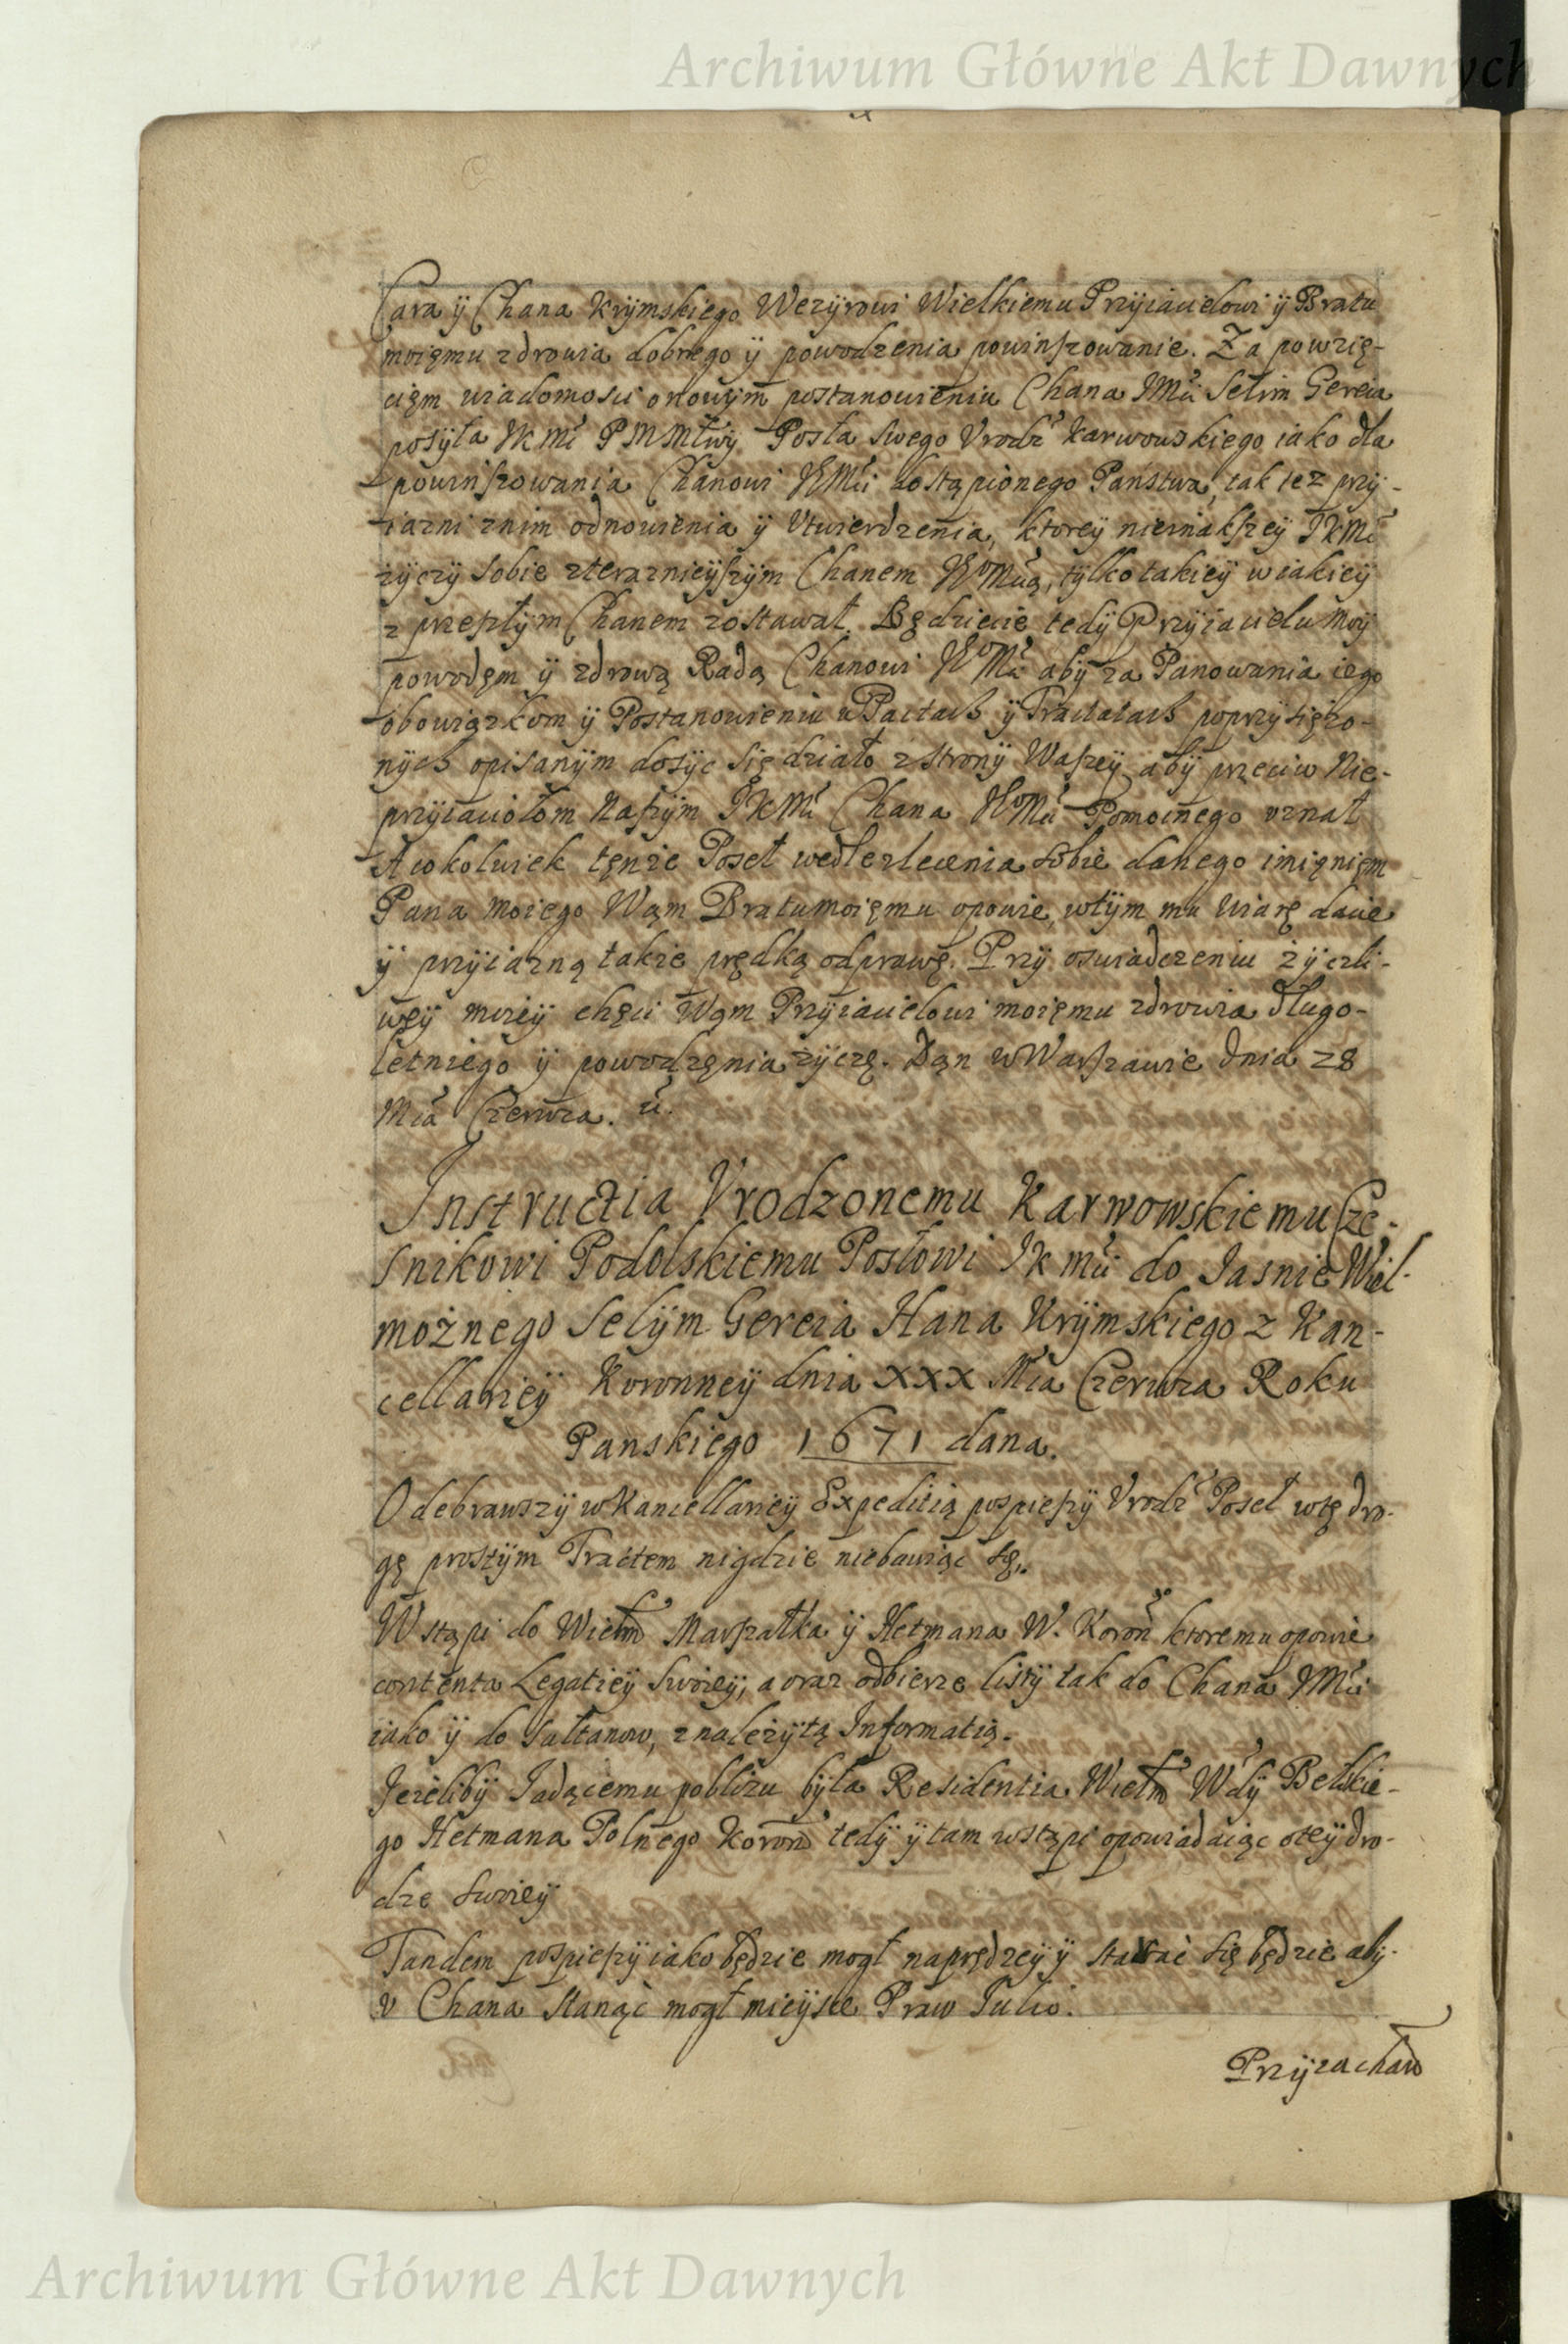 Archiwum Główne Akt Dawnych
Cara ÿ Chana Krÿmskiego Wezÿrowi Wielkiemu Przÿiacielowi ÿ Bratu
moięmu zdrowia dobrego ÿ powodzenia powinszowanie. Za powzię-
cięm wiadomosci o nowÿm postanowieniu Chana JMci Selim Gereia
posÿła JKMć PMMłwÿ Posła Swego Vrodz Karwowskiego iako dla
powinszowania Chanowi JEMći dostąpionego Państwa, tak tez przÿ-
iazni znim odnowienia ÿ Vtwierdzenia, ktoreÿ nieinakszeÿ JKMć
zÿczÿ sobie zteraznieÿszÿm Chanem JEoMcią, tÿlko takieÿ w iakieÿ
z przeszłÿm Chanem zostawał. Będziecie tedÿ Przÿiacielu moÿ
powodęm ÿ zdrową Radą Chanowi JEoMći abÿ za Panowania iego
obowiązkom ÿ Postanowieniu w Pactach ÿ Tractatach poprzÿsięzo-
nÿch opisanÿm dosÿc się działo z stronÿ Waszeÿ, abÿ przeciw Nie-
przÿiaciołom Naszÿm JKMć Chana JEoMći Pomocnego vznał
A cokolwiek tęnze Poseł wedle zlecenia sobie danego imięnięm
Pana moiego Wąm Bratu moięmu opowie, wtÿm mu wiarę dacie
ÿ przÿiazną takze prędką odprawę. Przÿ oswiadczeniu zÿczli-
węÿ moieÿ chęci Wąm Przÿiacielowi moięmu zdrowia długo-
letniego ÿ powodzęnia zÿczę. Dąn w Warszawie dnia 28
Mca Czerwca. &.
Instructia Vrodzonemu Karwowskiemu Cze-
snikowi Podolskiemu Posłowi JKmći do Jasnie Wiel-
możnego Selÿm Gereia Hana Krÿmskiego z Kan-
cellarieÿ Koronneÿ dnia XXX Mca Czerwca Roku
Panskiego 1671 dana.
Odebrawszÿ w Kancellarieÿ Expeditią pospieszÿ Vrodz Poseł wtę dro-
gę prostÿm Tractem nigdzie niebawiąc się.
Wstąpi do Wielm Marszałka ÿ Hetmana W. Koron ktoremu opowie
contenta Legatieÿ swoieÿ, a oraz odbierze listÿ tak do Chana JMći
iako ÿ do Sałtanow, z nalezÿtą Informatią.
Jezelibÿ Jadącemu poblizu bÿła Residentia Wielm Wdÿ Bełskie-
go Hetmana Polnego Koron tedÿ ÿ tam wstąpi opowiadaiąc o teÿ dro-
dze swoieÿ
Tandem pospieszÿ iako będzie mogł naprędzeÿ ÿ starać się będzie abÿ
v Chana stanąć mogł mieÿsce Praw Julio.
Przÿzachaw
Archiwum Główne Akt Dawnych